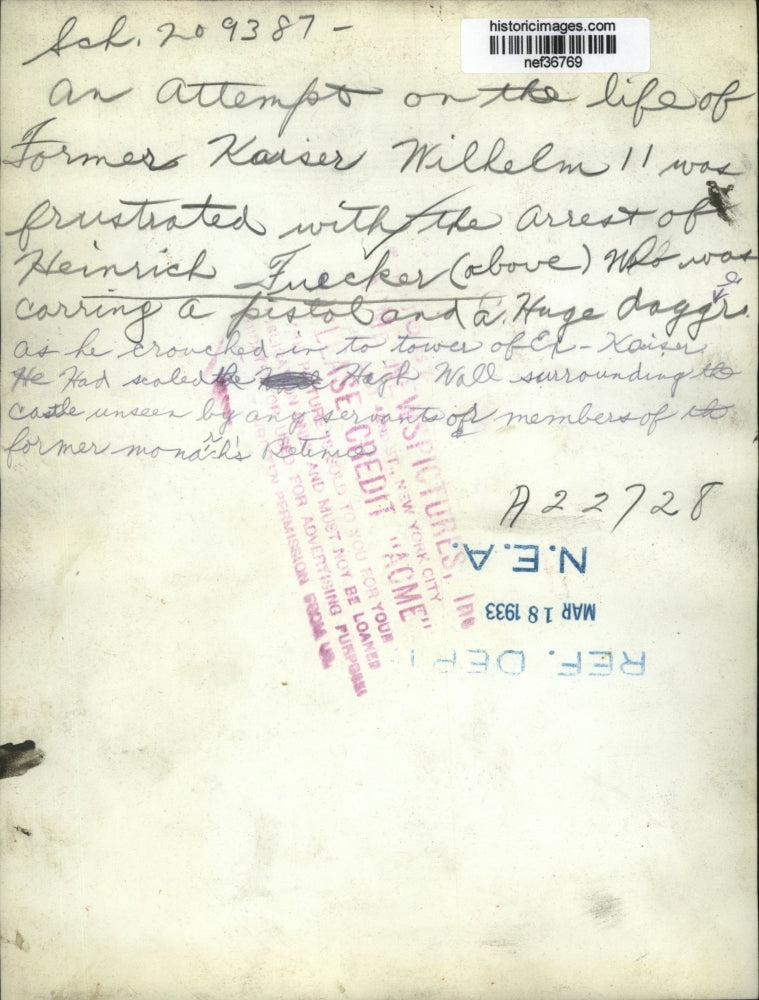 historicimages.com
nef36769
Sch. 209387-
An Attempt on the life of
Former Kaiser Wilhelm 11 was
frustrated with the arrest of
Heinrich Fuecker (above) Who was
carring a pistol and a Huge daggr
e
as he crouched in to tower of Ex-Kaiser
He Had scaled the High Wall surrounding the
castle unseen by any servants or members of the
former monarch's Retinue
A22728
N.E.A.
MAR 18 1933
REF. DEPT.
PICTURES, INC
ST., NEW YORK CITY
CREDIT "ACME"
SOLD TO YOU FOR YOUR
AND MUST NOT BE LOANED
FOR ADVERTISING PURPOSES
WRITTEN PERMISSION FROM US.